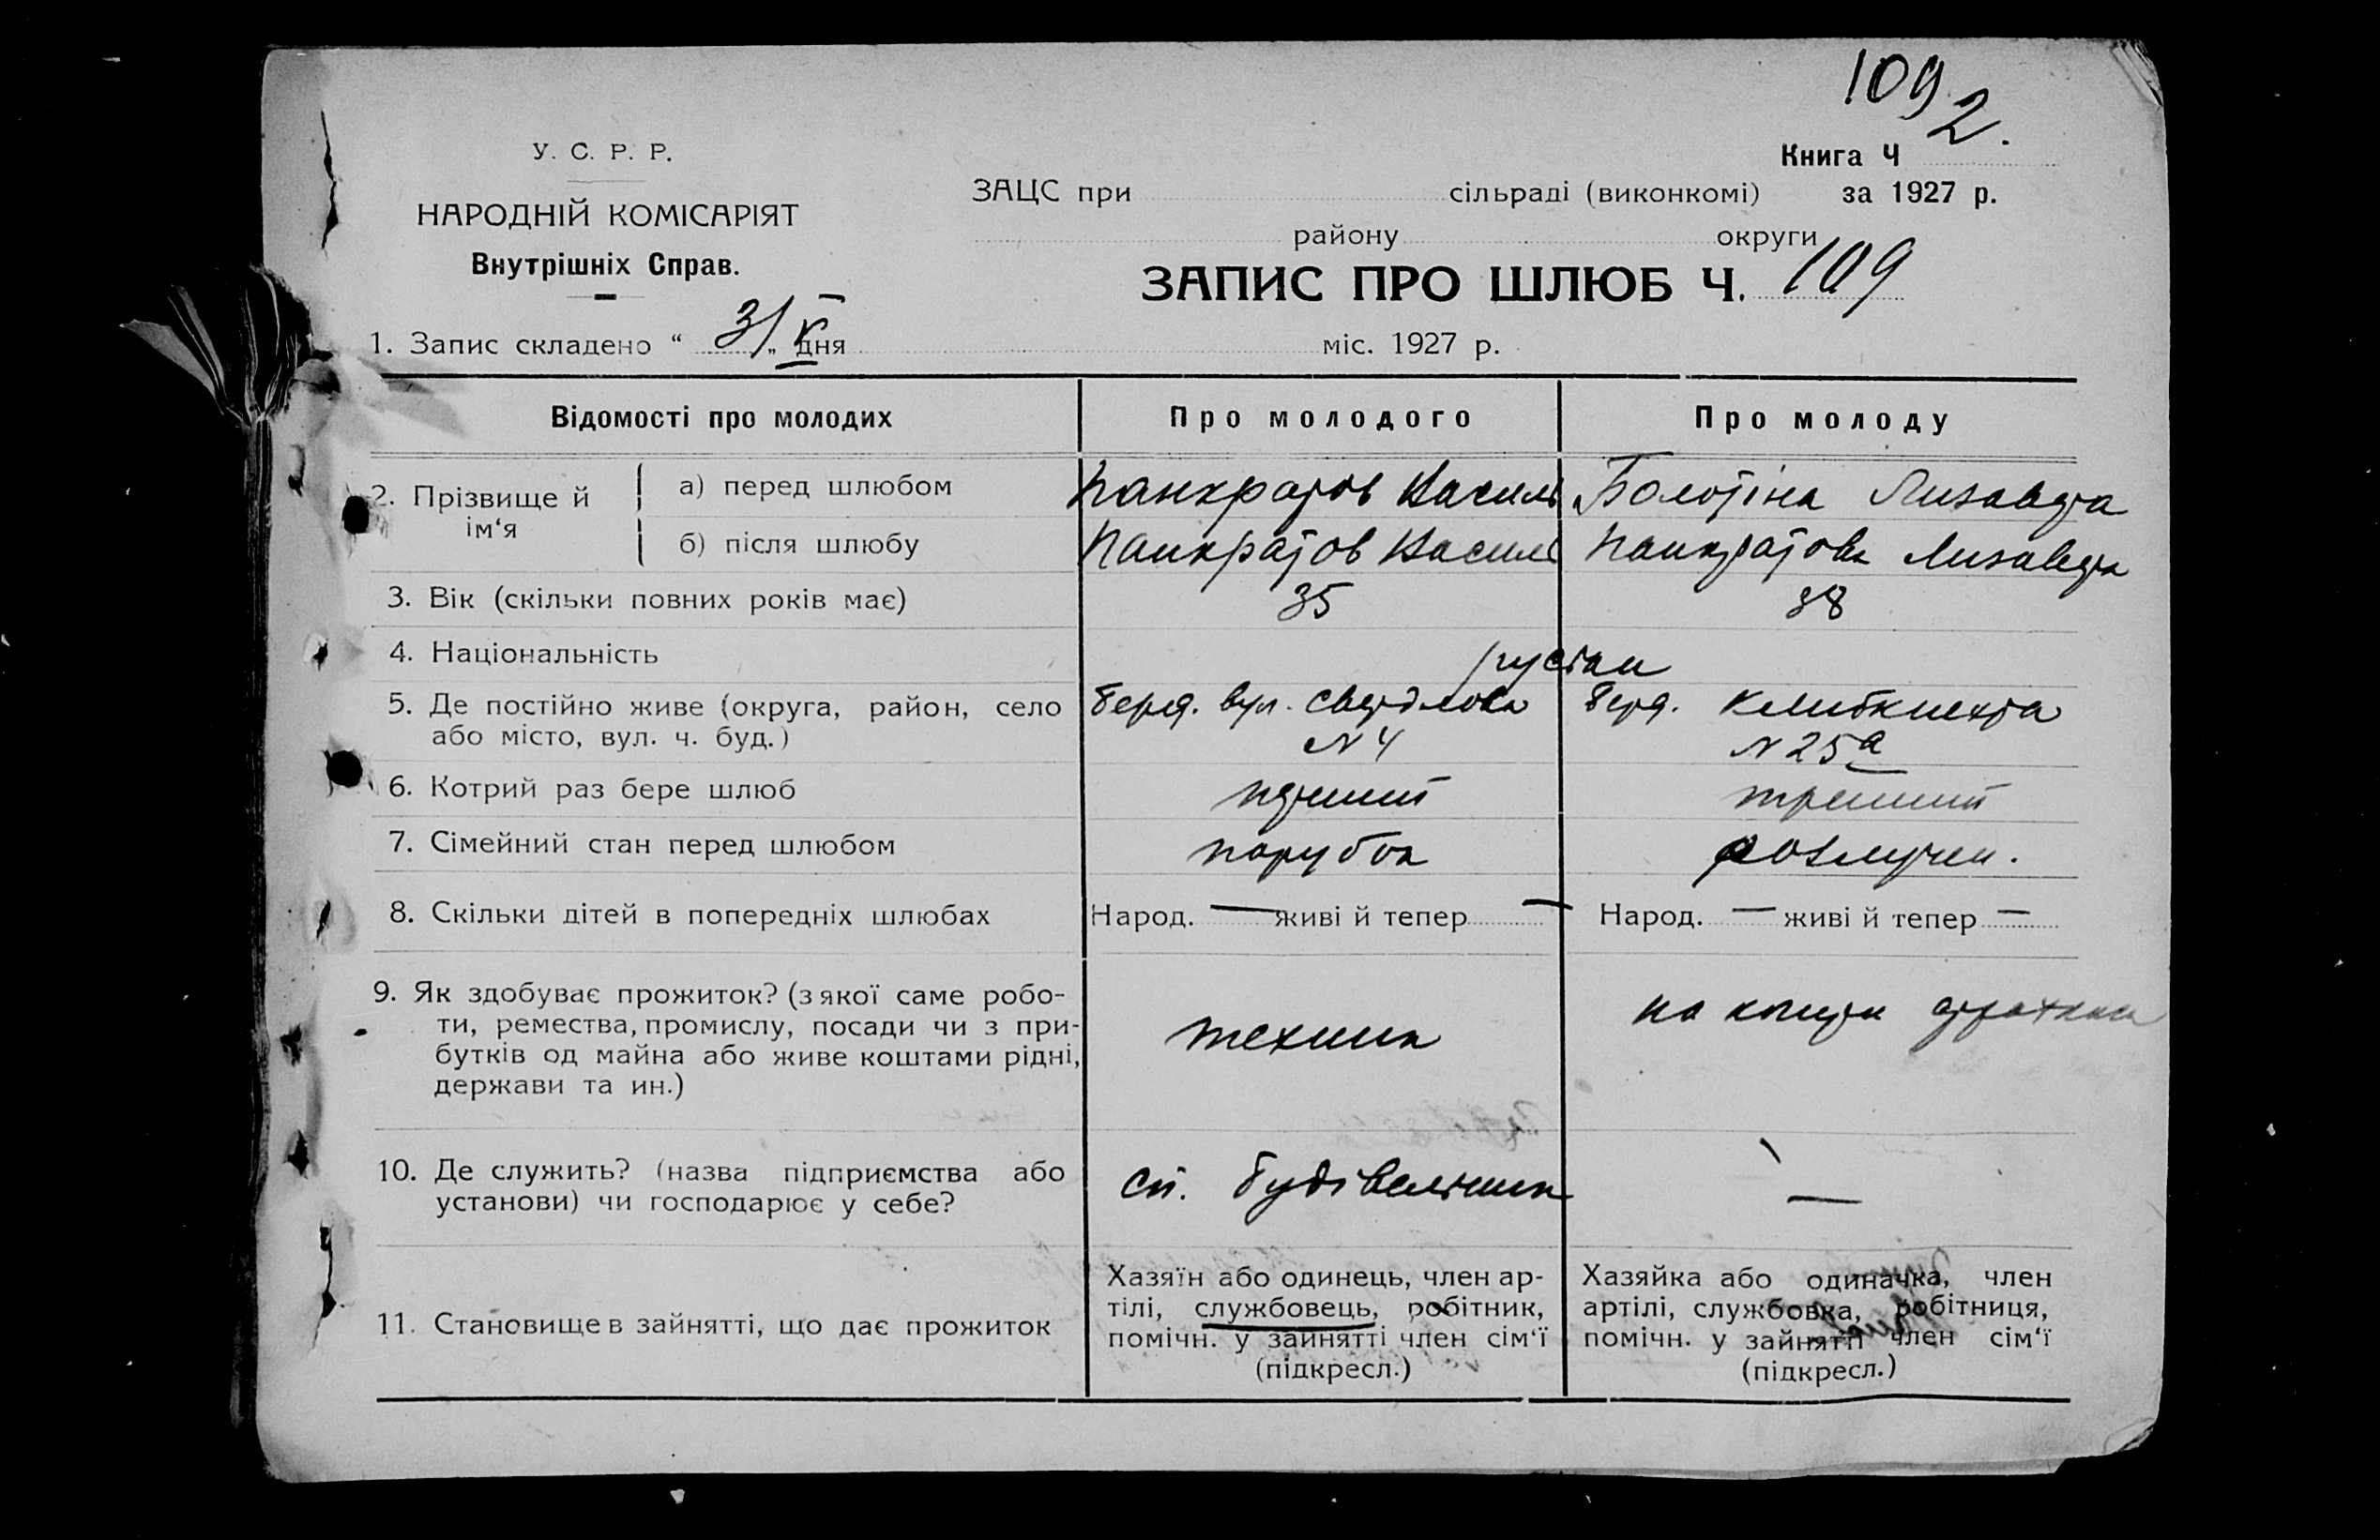 109
2.
У. С. Р. Р.
Книга Ч
НАРОДНІЙ КОМІСАРІЯТ
ЗАЦС при сільраді (виконкомі) за 1927 р.
Внутрішніх Справ.
району округи
ЗАПИС ПРО ШЛЮБ Ч. 109
1. Запис складено “ 3/V „ дня міс. 1927 р.
Відомості про молодих Про молодого Про молоду
2. Прізвище й ім‘я
а) перед шлюбом Панкратов Василь Болотіна Лизавета
б) після шлюбу Панкратов Василь Панкратова Лизавета
3. Вік (скільки повних років має) 35 38
4. Національність
5. Де постійно живе (округа, район, село Берд. вул. Свердлова Берд. К Либкнехта
або місто, вул. ч. буд.) N 4 N 25а
6. Котрий раз бере шлюб перший третий
7. Сімейний стан перед шлюбом парубок розлучен.
8. Скільки дітей в попередніх шлюбах Народ. — живі й тепер — Народ. — живі й тепер —
9. Як здобуває прожиток? (з якої саме робо-
ти, ремества, промислу, посади чи з при-
бутків од майна або живе коштами рідні,
держави та ин.)
технік
на кошти
10. Де служить? (назва підприємства або
установи) чи господарює у себе?
сп. будівельник
—
11. Становище в зайнятті, що дає прожиток
Хазяїн або одинець, член ар-
тілі, службовець, робітник,
помічн. у зайнятті член сім‘ї
(підкресл.)
Хазяйка або одиначка, член
артілі, службовка, робітниця,
помічн. у зайнятті член сім‘ї
(підкресл.)